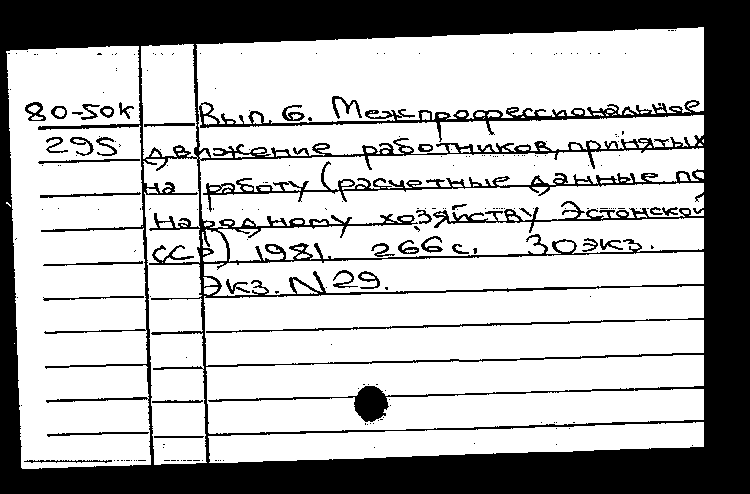 80-50к Вып. 6. Межпрофессиональное
295 движение работников, принятых
на работу (расчетные данные по
народному хозяйству Эстонской
ССР). 1981. 266 с. 30 экз.
Экз. N 29.